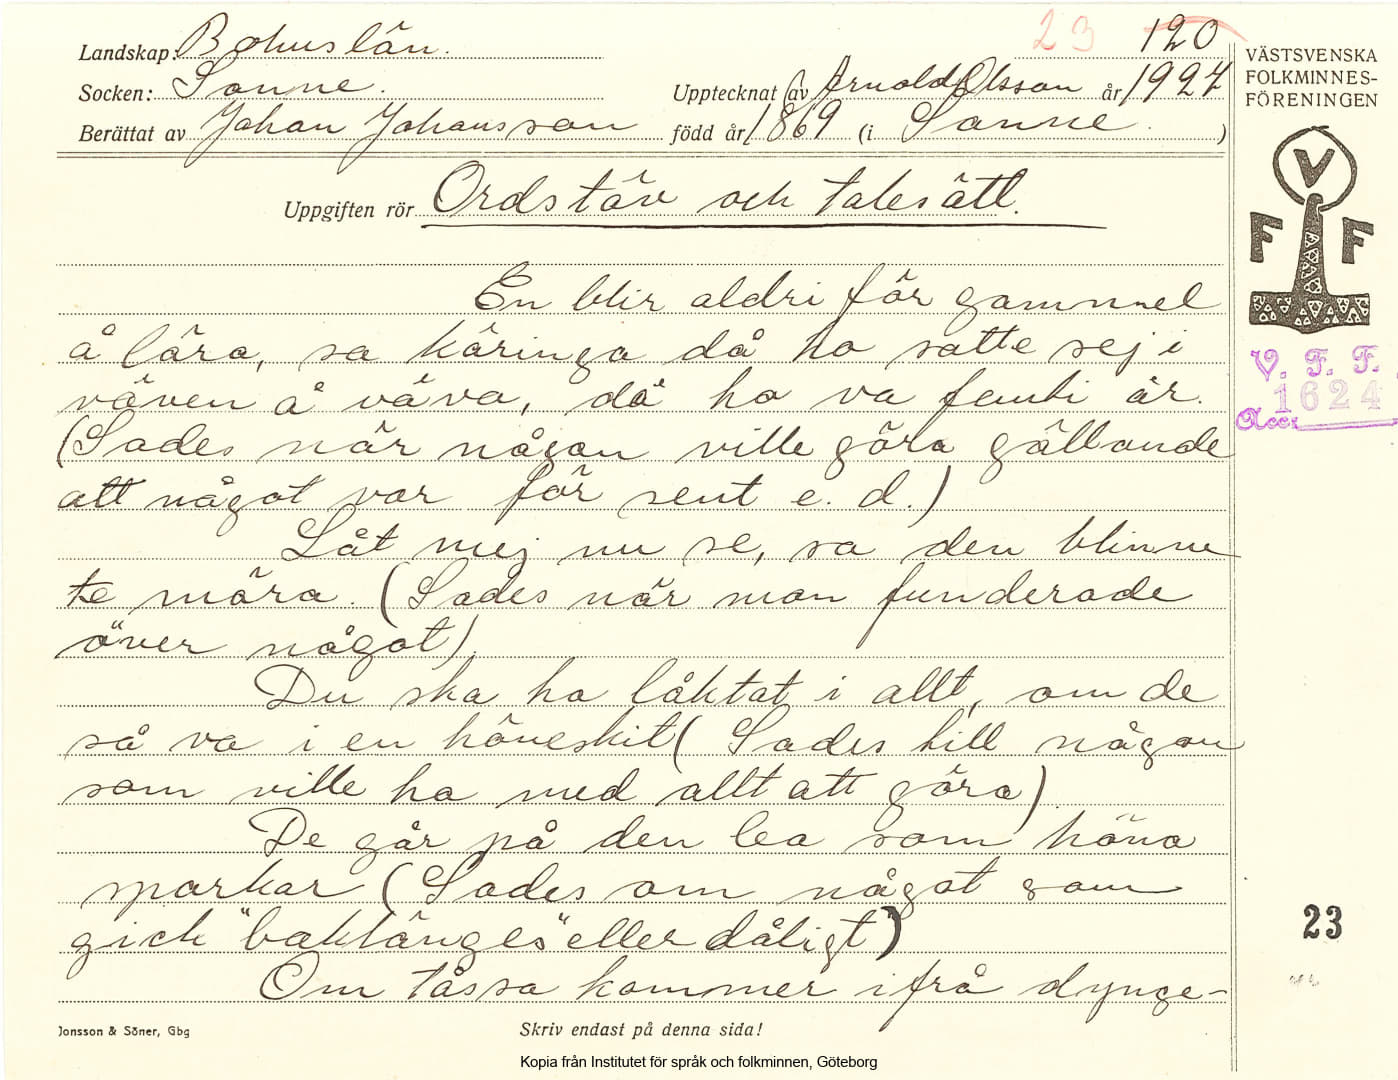 23 120
Landskap: Bohuslän.
Socken: Sanne. Upptecknat av Arnold Olsson år 1927
Berättat av Johan Johansson född år 1869 (i Sanne. )
Uppgiften rör Ordstäv och talesätt.
En blir aldri för gammel
å lära, sa käringa då ho satte sej i
väven å väva, då ho va femti år.
(Sades när någon ville göra gällande
att något var för sent e. d.)
Låt mej nu se, sa den blinne
te mära. (Sades när man funderade
över något)
Du ska ha låktat i allt, om de
så va i en höneskit (Sades till någon
som ville ha med allt att göra)
De går på den lea som höna
sparkar (Sades om något som
gick "baklänges" eller dåligt)
Om tåssa kommer ifrå dynge-
Jonsson & Söner, Gbg Skriv endast på denna sida!
Kopia från Institutet för språk och folkminnen, Göteborg
VÄSTSVENSKA
FOLKMINNES-
FÖRENINGEN
V
F F
V. F. F.
1624
Acc:
23